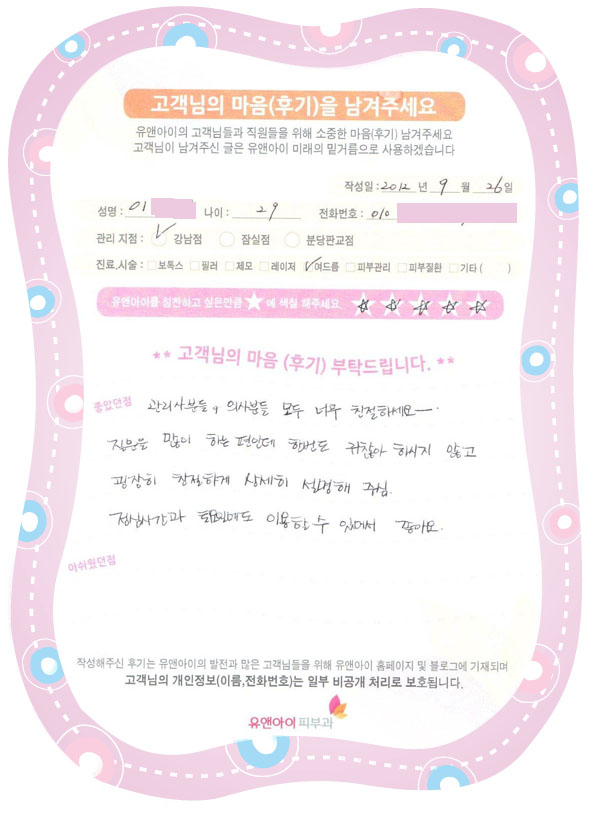 고객님의 마음(후기)을 남겨주세요
유앤아이의 고객님들과 직원들을 위해 소중한 마음(후기) 남겨주세요
고객님이 남겨주신 글은 유앤아이 미래의 밑거름으로 사용하겠습니다
작성일 : 2012 년 9 월 26 일
성명 : 이 나이 : 29 전화번호 : 010
관리 지점 : 강남점 잠실점 분당판교점
진료,시술 : 보톡스 필러 제모 레이저 여드름 피부관리 피부질환 기타 ( )
유앤아이를 칭찬하고 싶은만큼 ★ 에 색칠 해주세요 ★ ★ ★ ★ ★
** 고객님의 마음 (후기) 부탁드립니다. **
좋았던점 관리사분들, 의사분들 모두 너무 친절하세요ㅡ.
질문을 많이 하는 편인데 한번도 귀찮아 하시지 않고
굉장히 친절하게 상세히 설명해 주심.
점심시간과 토요일에도 이용할 수 있어서 좋아요.
아쉬웠던점
작성해주신 후기는 유앤아이의 발전과 많은 고객님들을 위해 유앤아이 홈페이지 및 블로그에 기재되며
고객님의 개인정보(이름,전화번호)는 일부 비공개 처리로 보호됩니다.
유앤아이 피부과